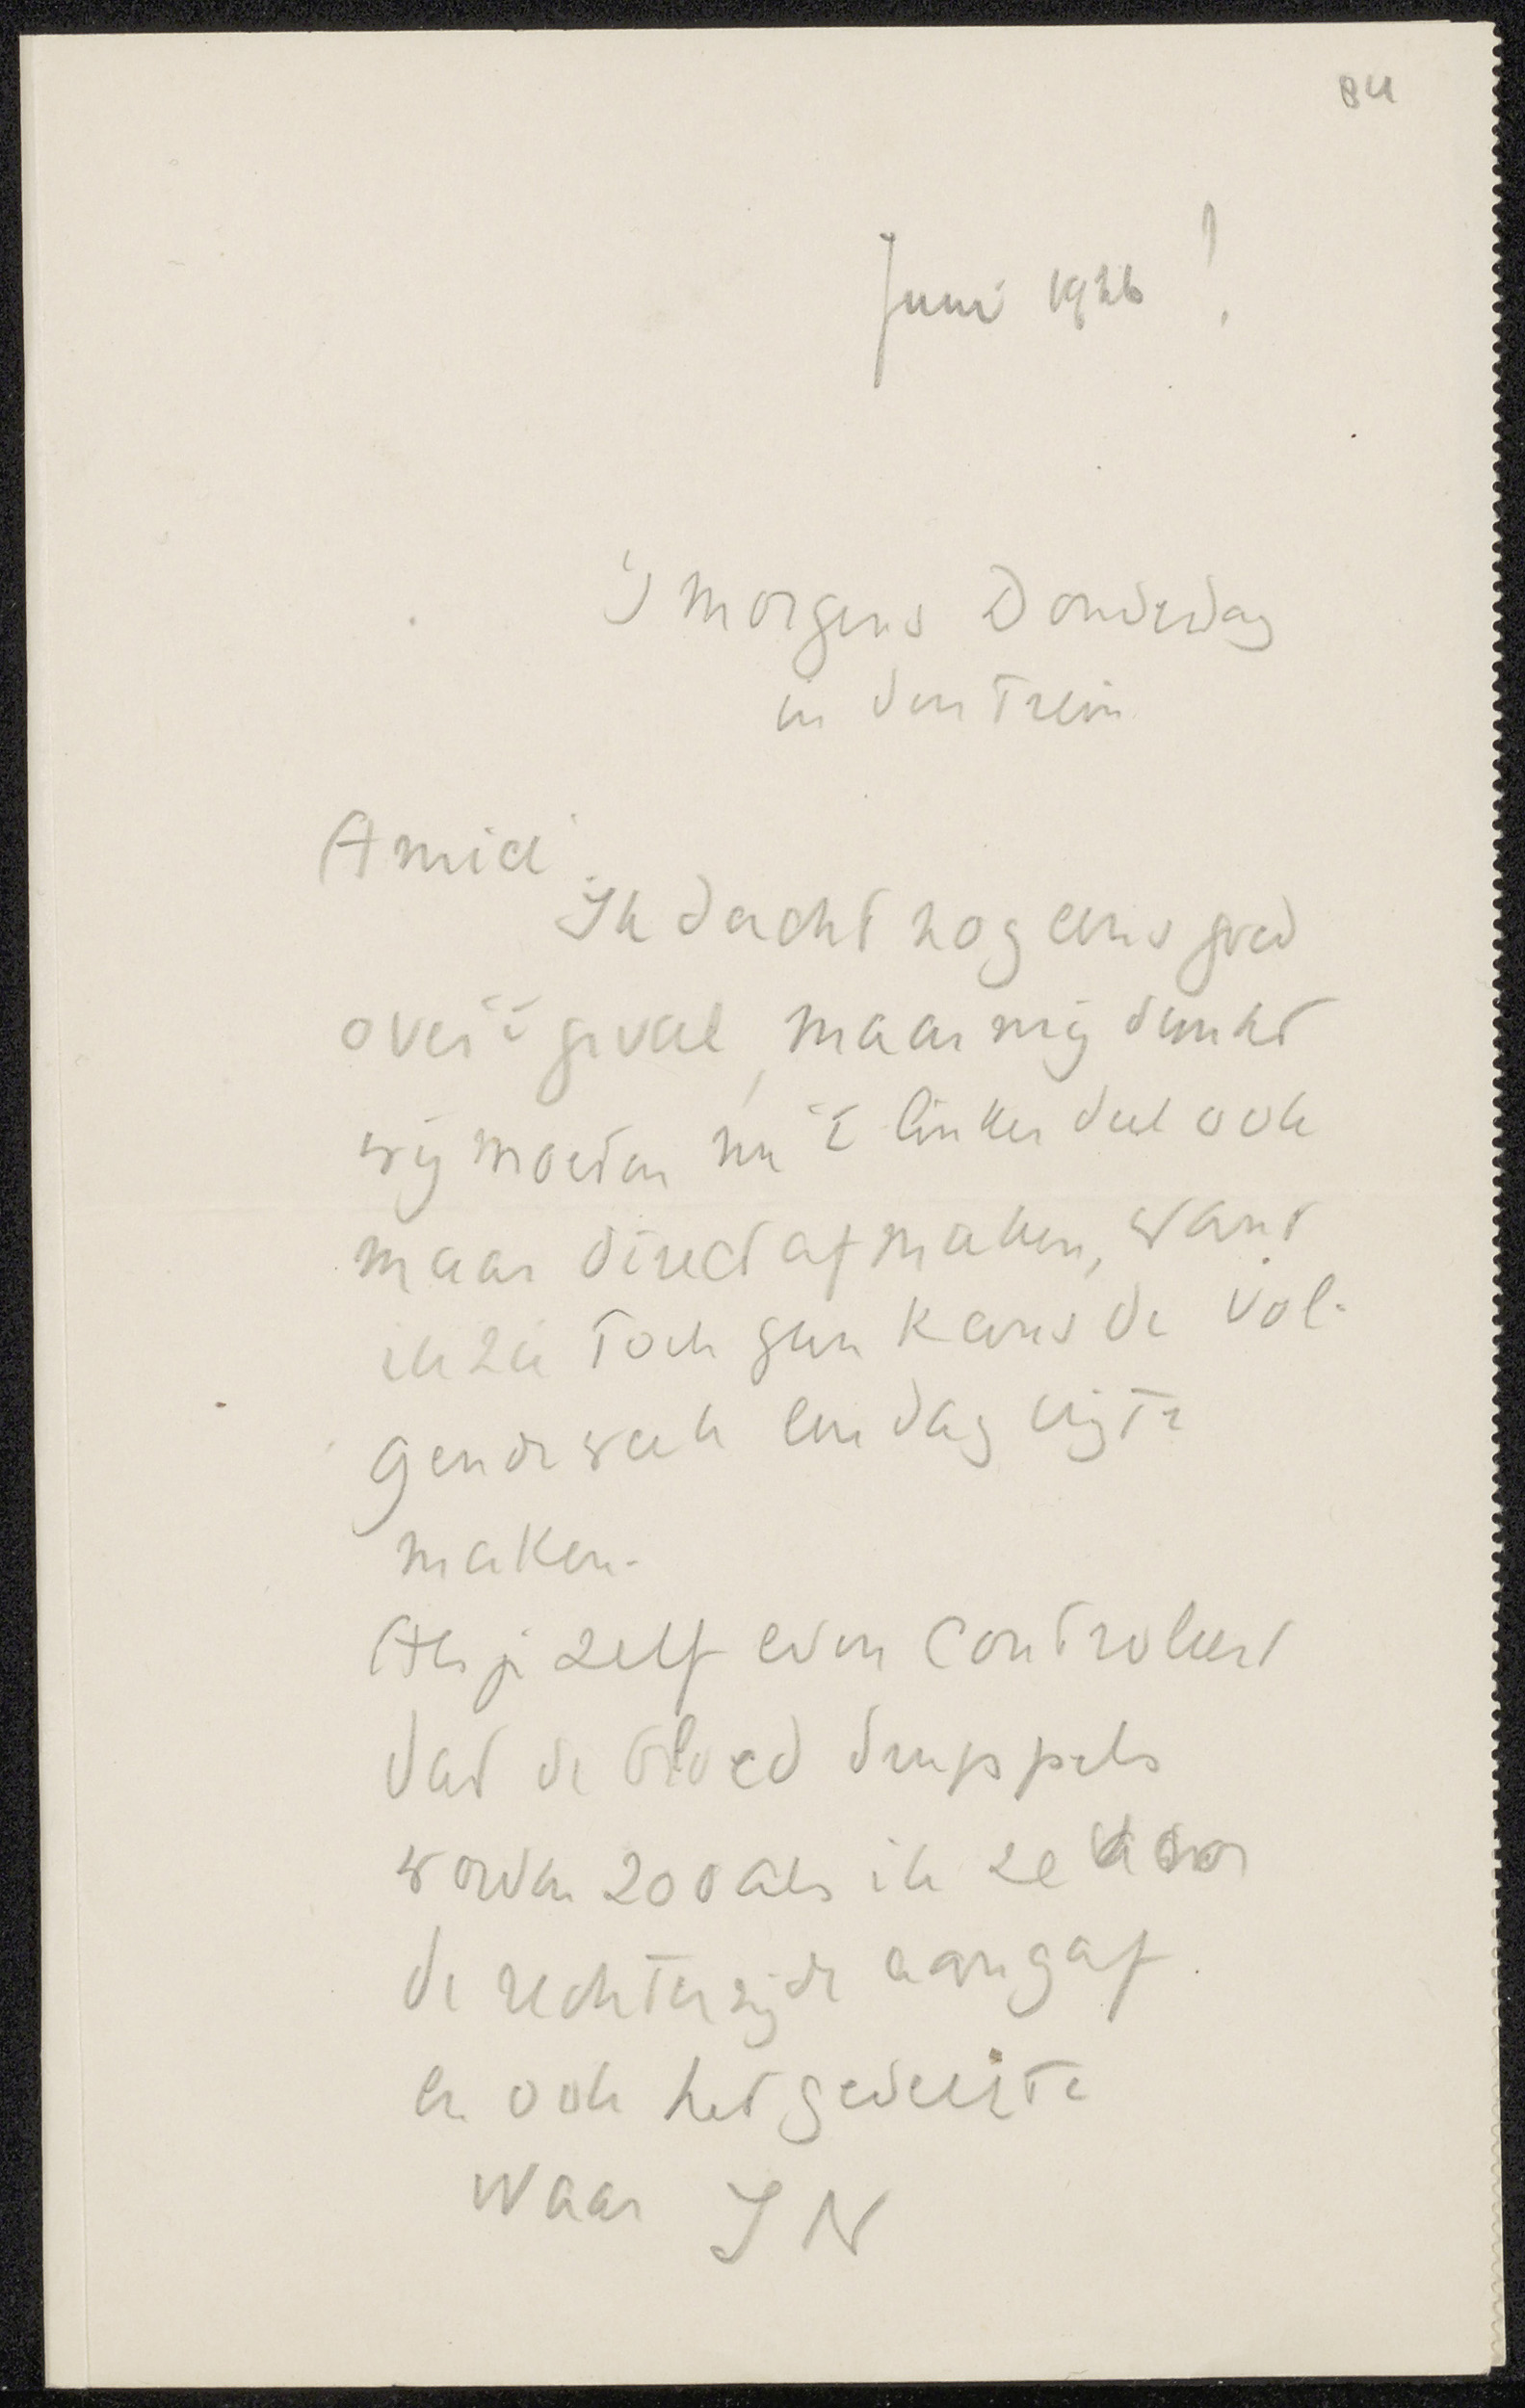 84
Juni 1926 !
's morgens Donderdag
in den trein
Amice
Ik dacht nog eens goed
over 't geval, maar mij dunkt
wij moeten nu 't linker deel ook
maar direct afmaken, want
ik zie toch geen kans de vol-
gende week een dag vrij te
maken.
Als je zelf even controleert
dat de bloed druppels
worden zooals ik ze voor
de rechterzijde aangaf
en ook het gedeelte
waar I N